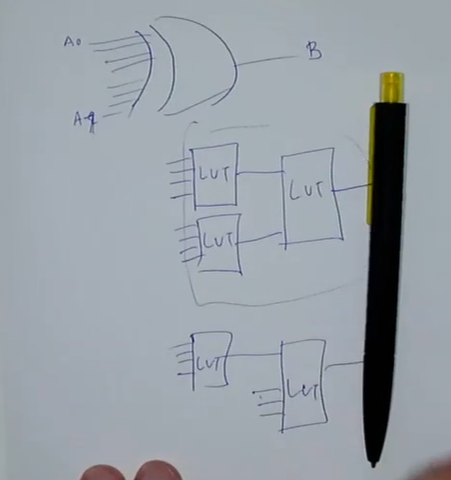 A0
B
LUT
LUT
LUT
LUT
LUT